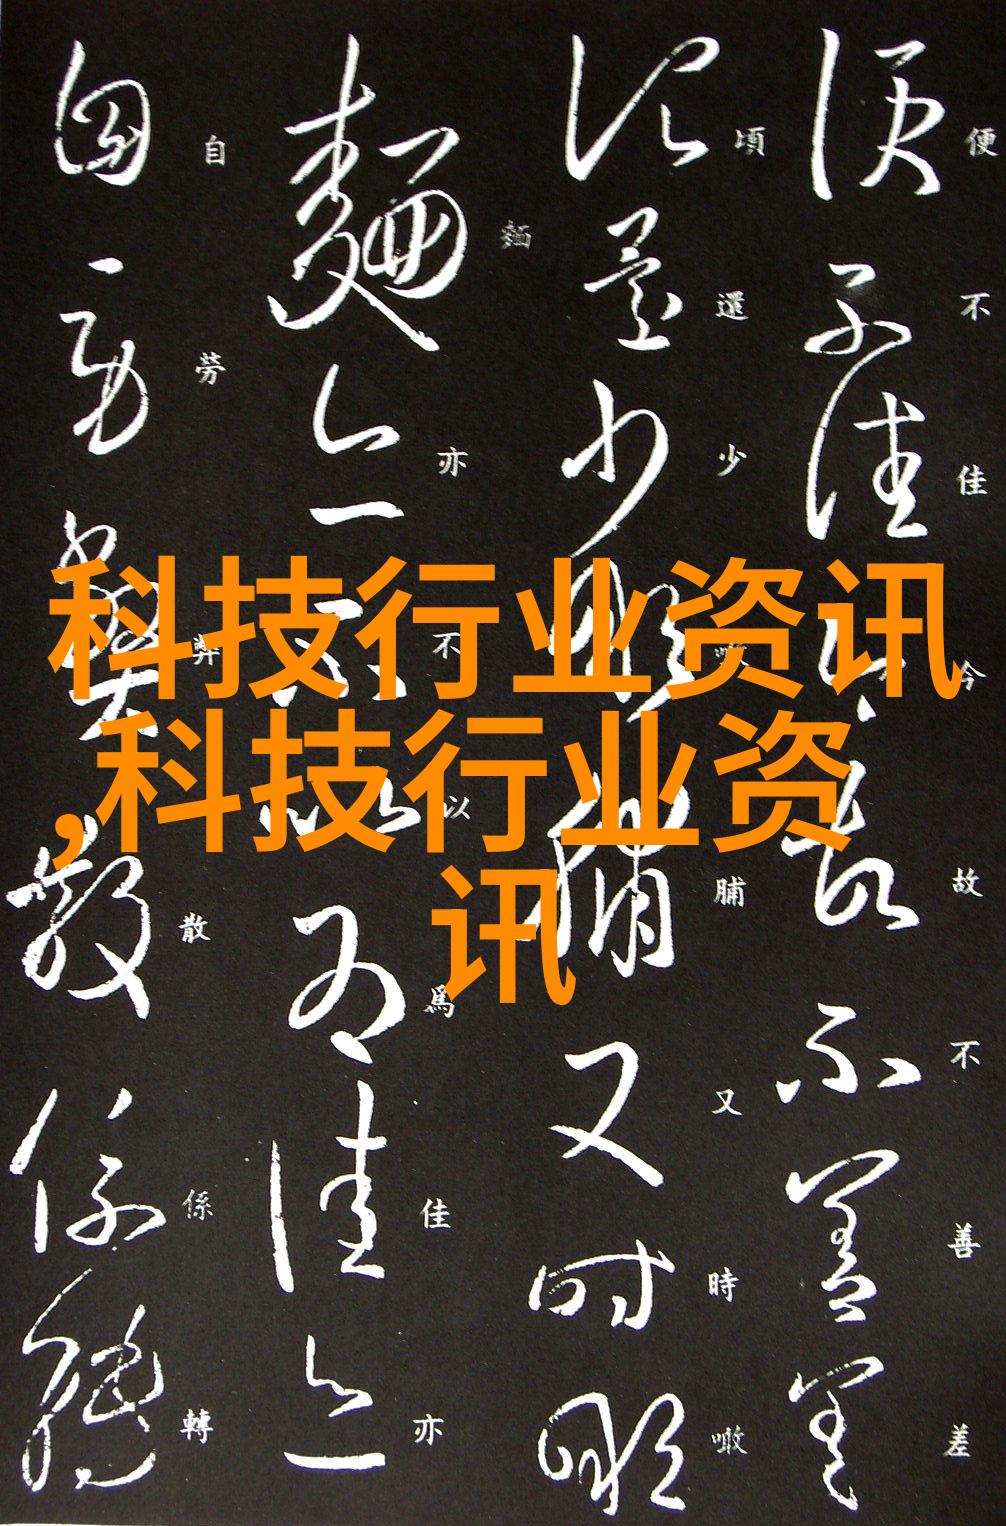 科技行业资讯
,科技行业资
讯
便不佳今故不善差
頃還少噉脯又時噉
麵亦不以爲佳亦
自勞弊散係轉